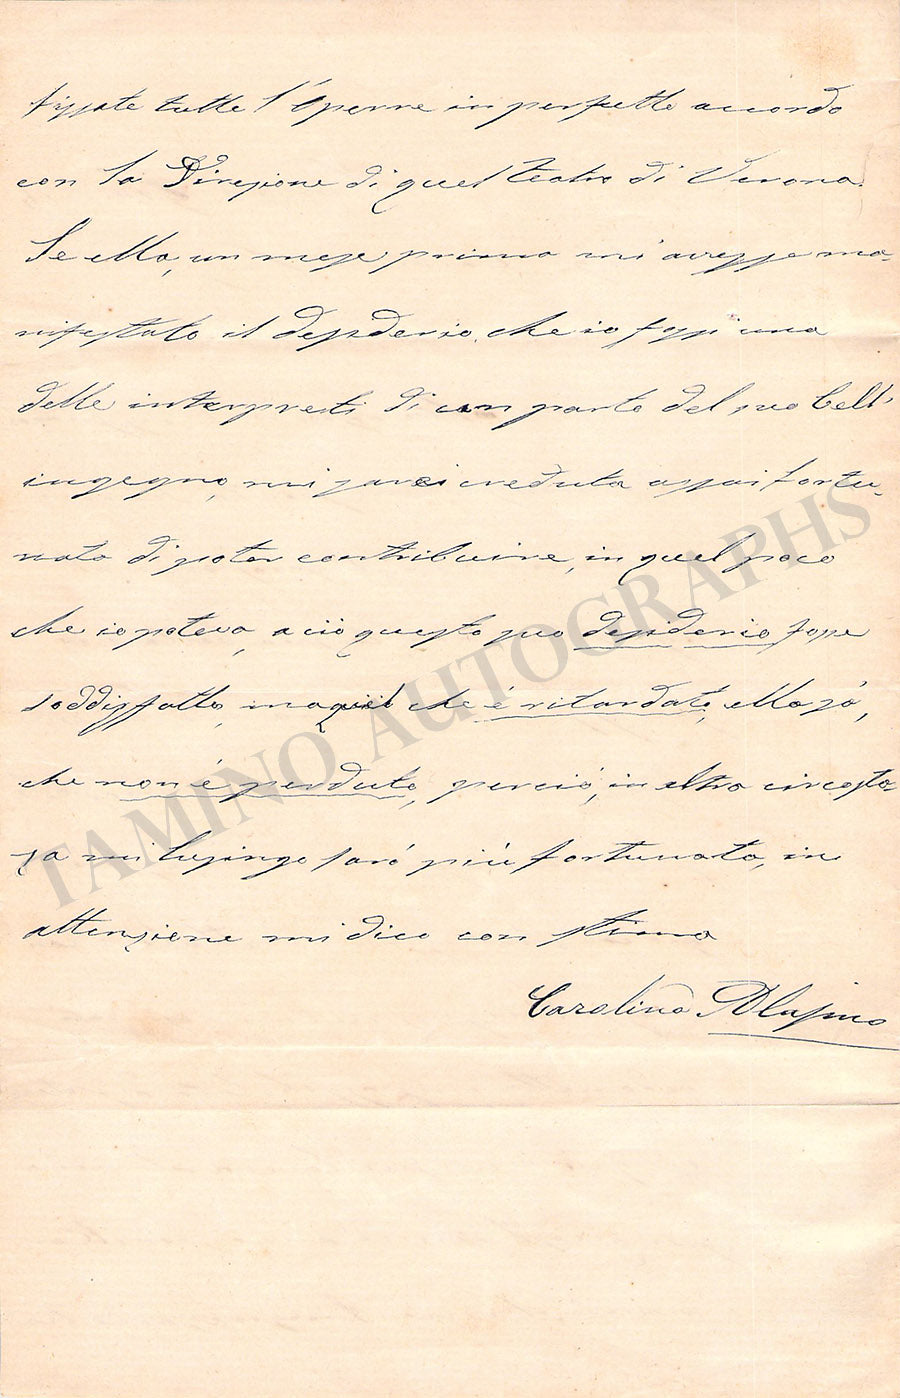 fissate tutte l'Opere in perfetto accordo
con la Direzione di quel teatro di Verona.
Se Ella, un mese prima mi avesse ma-
nifestato il desiderio, che io fossi una
delle interpreti di un parto del suo bell'
ingegno, mi sarei creduta assai fortu-
nata di poter contribuire, in quel poco
che io poteva, a ciò questo suo desiderio fosse
soddisfatto, ma quel che é ritardato, Ella sà,
che non é perduto, perciò, in altra circosta-
za mi lusingo sarò più fortunata, in
attenzione mi dico con stima
Carolina
TAMINO AUTOGRAPHS